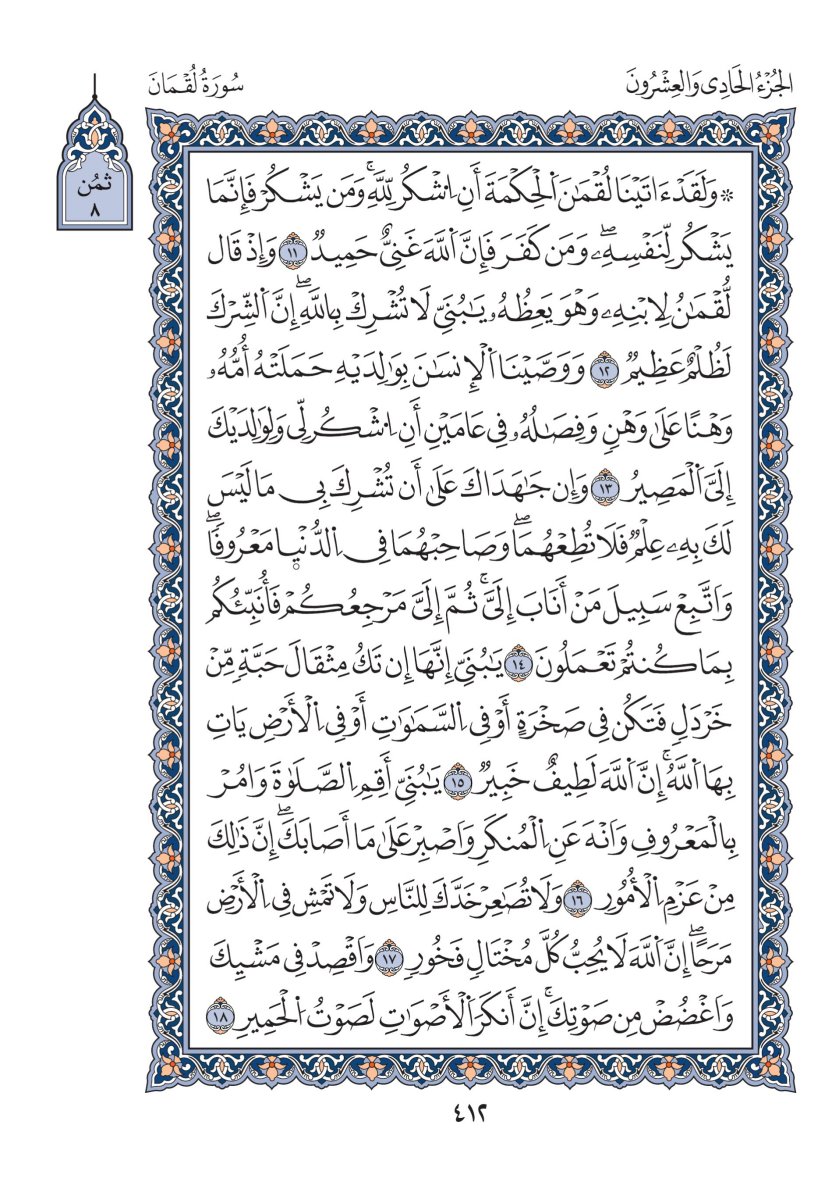 الجُزْءُ الحَادِي وَالعِشْرُونَ
سُورَةُ لُقْمَانَ
ثمُن
٨
۞ وَلَقَدْ ءَاتَيْنَا لُقْمَٰنَ اَ۬لْحِكْمَةَ أَنِ اِ۟شْكُر لِّلهِۚ وَمَن يَشْكُرْ فَإِنَّمَا
يَشْكُر لِّنَفْسِهِۦۖ وَمَن كَفَرَ فَإِنَّ اَ۬للَّهَ غَنِيٌّ حَمِيدٌ ١١ وَإِذْ قَال
لُّقْمَٰنُ لِابْنِهِۦ وَهْوَ يَعِظُهُۥ يَٰبُنَيِّ لَا تُشْرِكْ بِاللَّهِۖ إِنَّ اَ۬لشِّرْكَ
لَظُلْمٌ عَظِيمٌ ١٢ وَوَصَّيْنَا اَ۬لْإِنسَٰنَ بِوَٰلِدَيْهِ حَمَلَتْهُ أُمُّهُۥ
وَهْنًا عَلَىٰ وَهْنٍ وَفِصَٰلُهُۥ فِي عَامَيْنِ أَنِ اِ۟شْكُر لِّي وَلِوَٰلِدَيْكَ
إِلَيَّ اَ۬لْمَصِيرُ ١٣ وَإِن جَٰهَدَاكَ عَلَىٰ أَن تُشْرِكَ بِي مَا لَيْسَ
لَكَ بِهِۦ عِلْمٌ فَلَا تُطِعْهُمَاۖ وَصَاحِبْهُمَا فِي اِ۬لدُّنْي۪ا مَعْرُوفًاۖ
وَاتَّبِعْ سَبِيلَ مَنْ أَنَابَ إِلَيَّۚ ثُمَّ إِلَيَّ مَرْجِعُكُمْ فَأُنَبِّئُكُم
بِمَا كُنتُمْ تَعْمَلُونَ ١٤ يَٰبُنَيِّ إِنَّهَا إِن تَكُ مِثْقَالَ حَبَّةٍ مِّنْ
خَرْدَلٍ فَتَكُن فِي صَخْرَةٍ أَوْ فِي اِ۬لسَّمَٰوَٰتِ أَوْ فِي اِ۬لْأَرْضِ يَاتِ
بِهَا اَ۬للَّهُۚ إِنَّ اَ۬للَّهَ لَطِيفٌ خَبِيرٌ ١٥ يَٰبُنَيِّ أَقِمِ اِ۬لصَّلَوٰةَ وَامُرْ
بِالْمَعْرُوفِ وَانْهَ عَنِ اِ۬لْمُنكَرِ وَاصْبِرْ عَلَىٰ مَا أَصَابَكَۖ إِنَّ ذَٰلِكَ
مِنْ عَزْمِ اِ۬لْأُمُورِ ١٦ وَلَا تُصَٰعِرْ خَدَّكَ لِلنَّاسِ وَلَا تَمْشِ فِي اِ۬لْأَرْضِ
مَرَحًاۖ إِنَّ اَ۬للَّهَ لَا يُحِبُّ كُلَّ مُخْتَالٍ فَخُورٍ ١٧ وَاقْصِدْ فِي مَشْيِكَ
وَاغْضُضْ مِن صَوْتِكَۚ إِنَّ أَنكَرَ اَ۬لْأَصْوَٰتِ لَصَوْتُ اُ۬لْحَمِيرِ ١٨
٤١٢